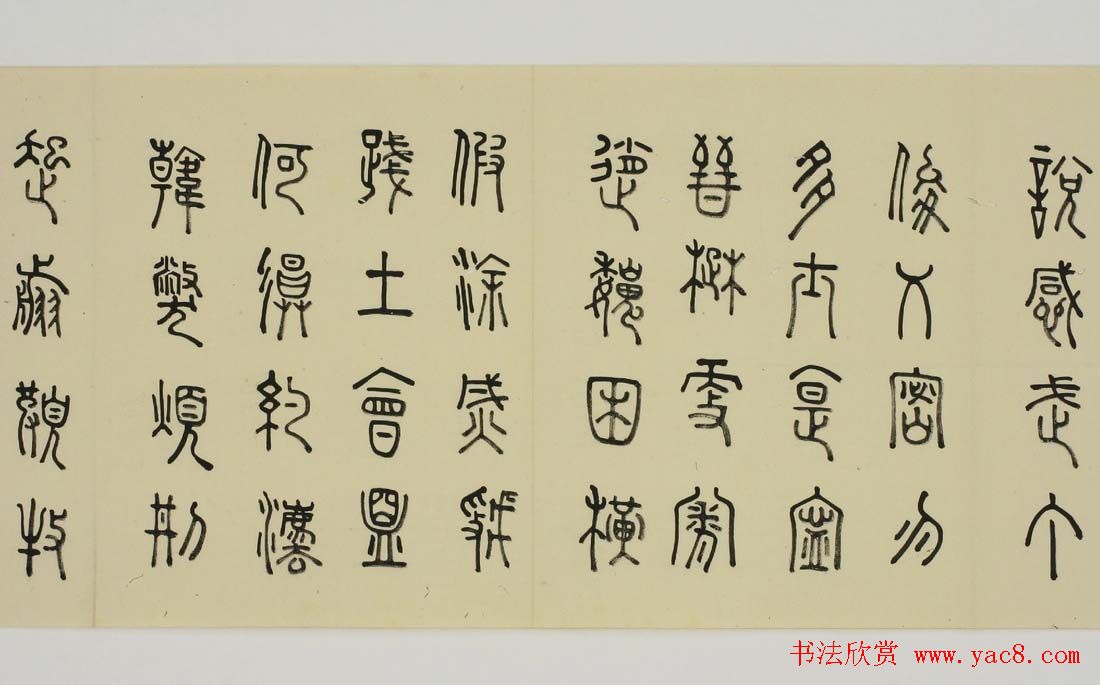 說感武丁
俊乂密勿
多士是寍
晉楚更
趙魏困橫
假涂烕虢
踐土會盟
何約灋
韓獘煩刑
起翦牧
书法欣赏 www.yac8.com